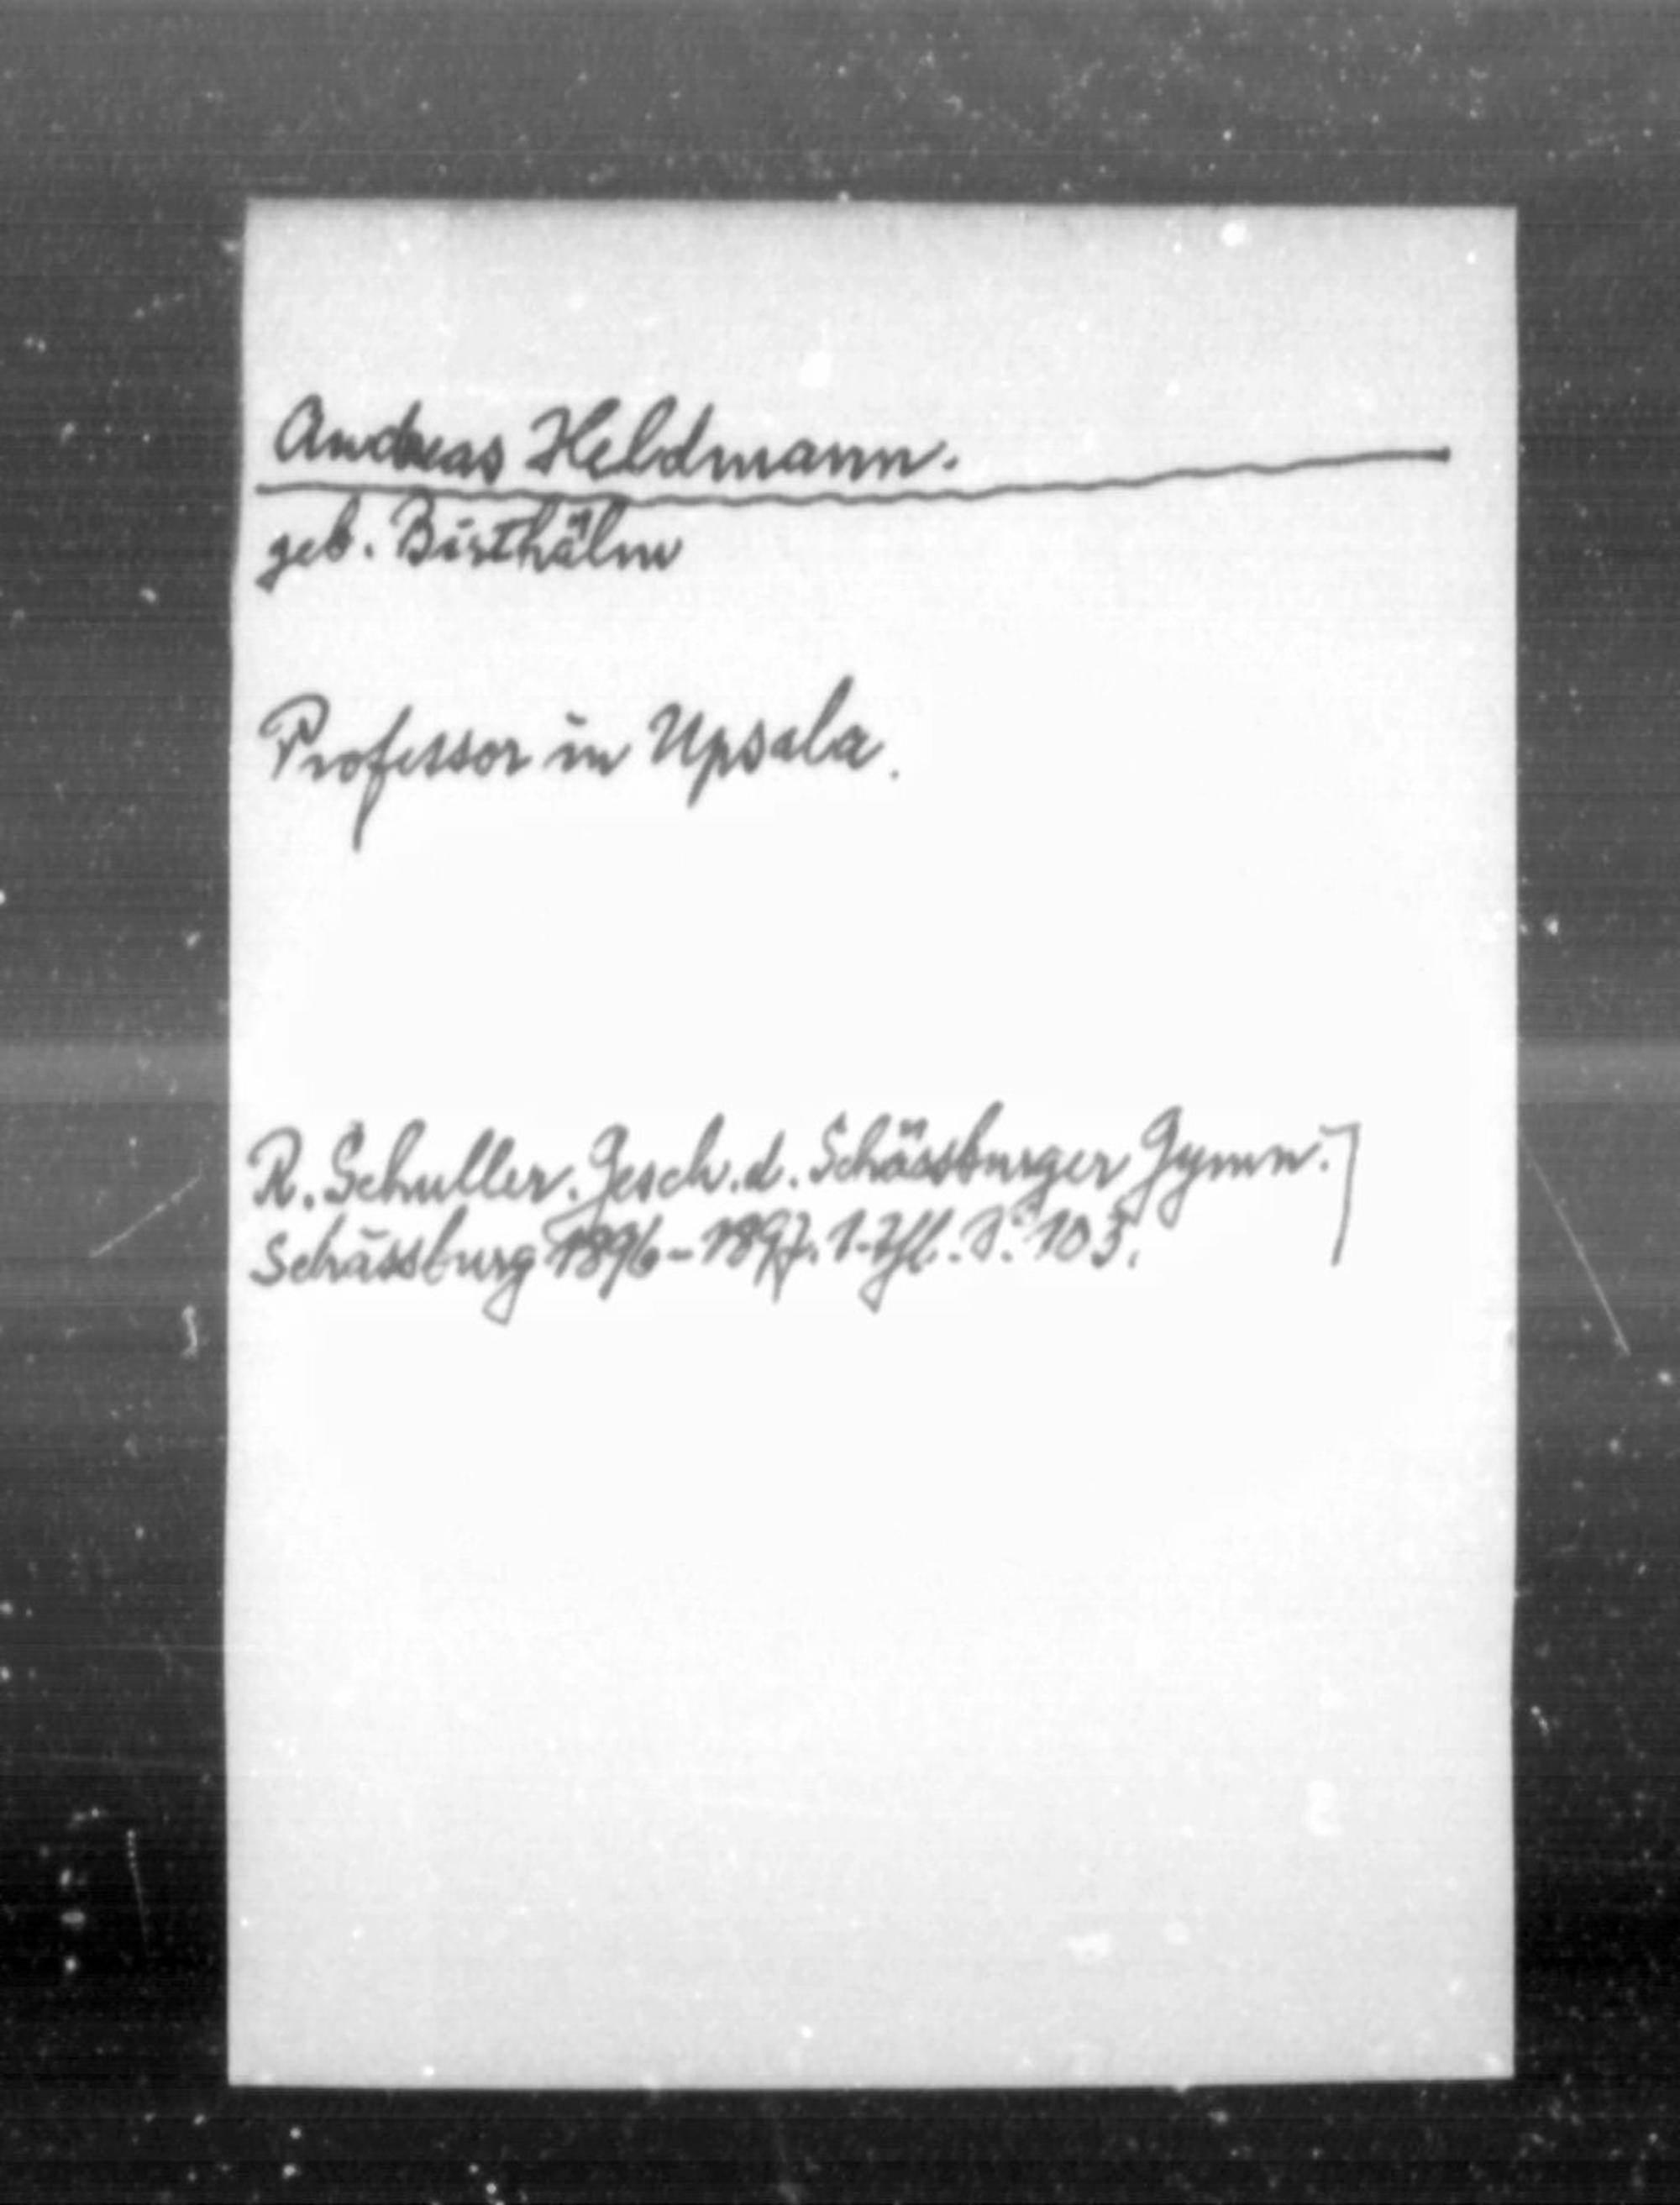 Andreas Heldmann.
geb. Birthälm
Professor in Upsala.
R. Schuller. Gesch. d. Schässburger Gymn.]
Schässburg 1896-1897. 1. Tfl. S. 103.